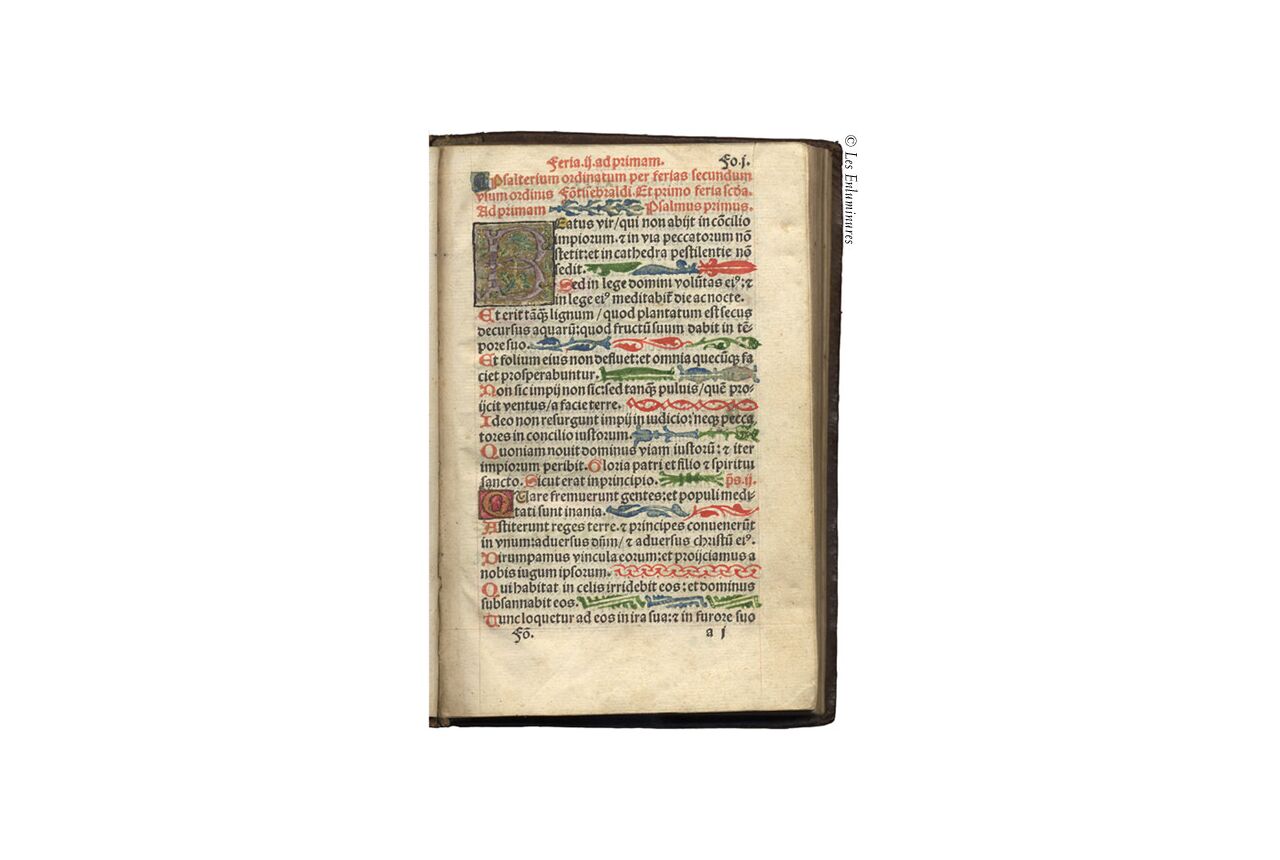 Feria.ij.ad primam. Fo.j.
Psalterium ordinatum per ferias secundum
vsum ordinis Fōtisebraldi. Et primo feria scđa.
Ad primam Psalmus primus.
BEatus vir/qui non abijt in cōcilio
impiorum.⁊ in via peccatorum nō
stetit:et in cathedra pestilentie nō
sedit.
Sed in lege domini volūtas eiꝰ:⁊
in lege eiꝰ meditabit᷑ die ac nocte.
Et erit tāꝙ lignum/quod plantatum est secus
decursus aquarū:quod fructū suum dabit in tē-
pore suo.
Et folium eius non defluet:et omnia quecūꝙ fa
ciet prosperabuntur.
Non sic impij non sic:sed tanꝙ puluis/quē pro-
ijcit ventus/a facie terre.
Ideo non resurgunt impij in iudicio:neqꝫ pecca
tores in concilio iustorum.
Quoniam nouit dominus viam iustorū:⁊ iter
impiorum peribit. Gloria patri et filio ⁊ spiritui
sancto. Sicut erat in principio. p̄s.ij.
QUare fremuerunt gentes:et populi medi-
tati sunt inania.
Astiterunt reges terre.⁊ principes conuenerūt
in vnum:aduersus dñm/⁊ aduersus christū eiꝰ.
Dirumpamus vincula eorum:et proijciamus a
nobis iugum ipsorum.
Qui habitat in celis irridebit eos:et dominus
subsannabit eos.
Tunc loquetur ad eos in ira sua:⁊ in furore suo
Fō. a j
© Les Enluminures